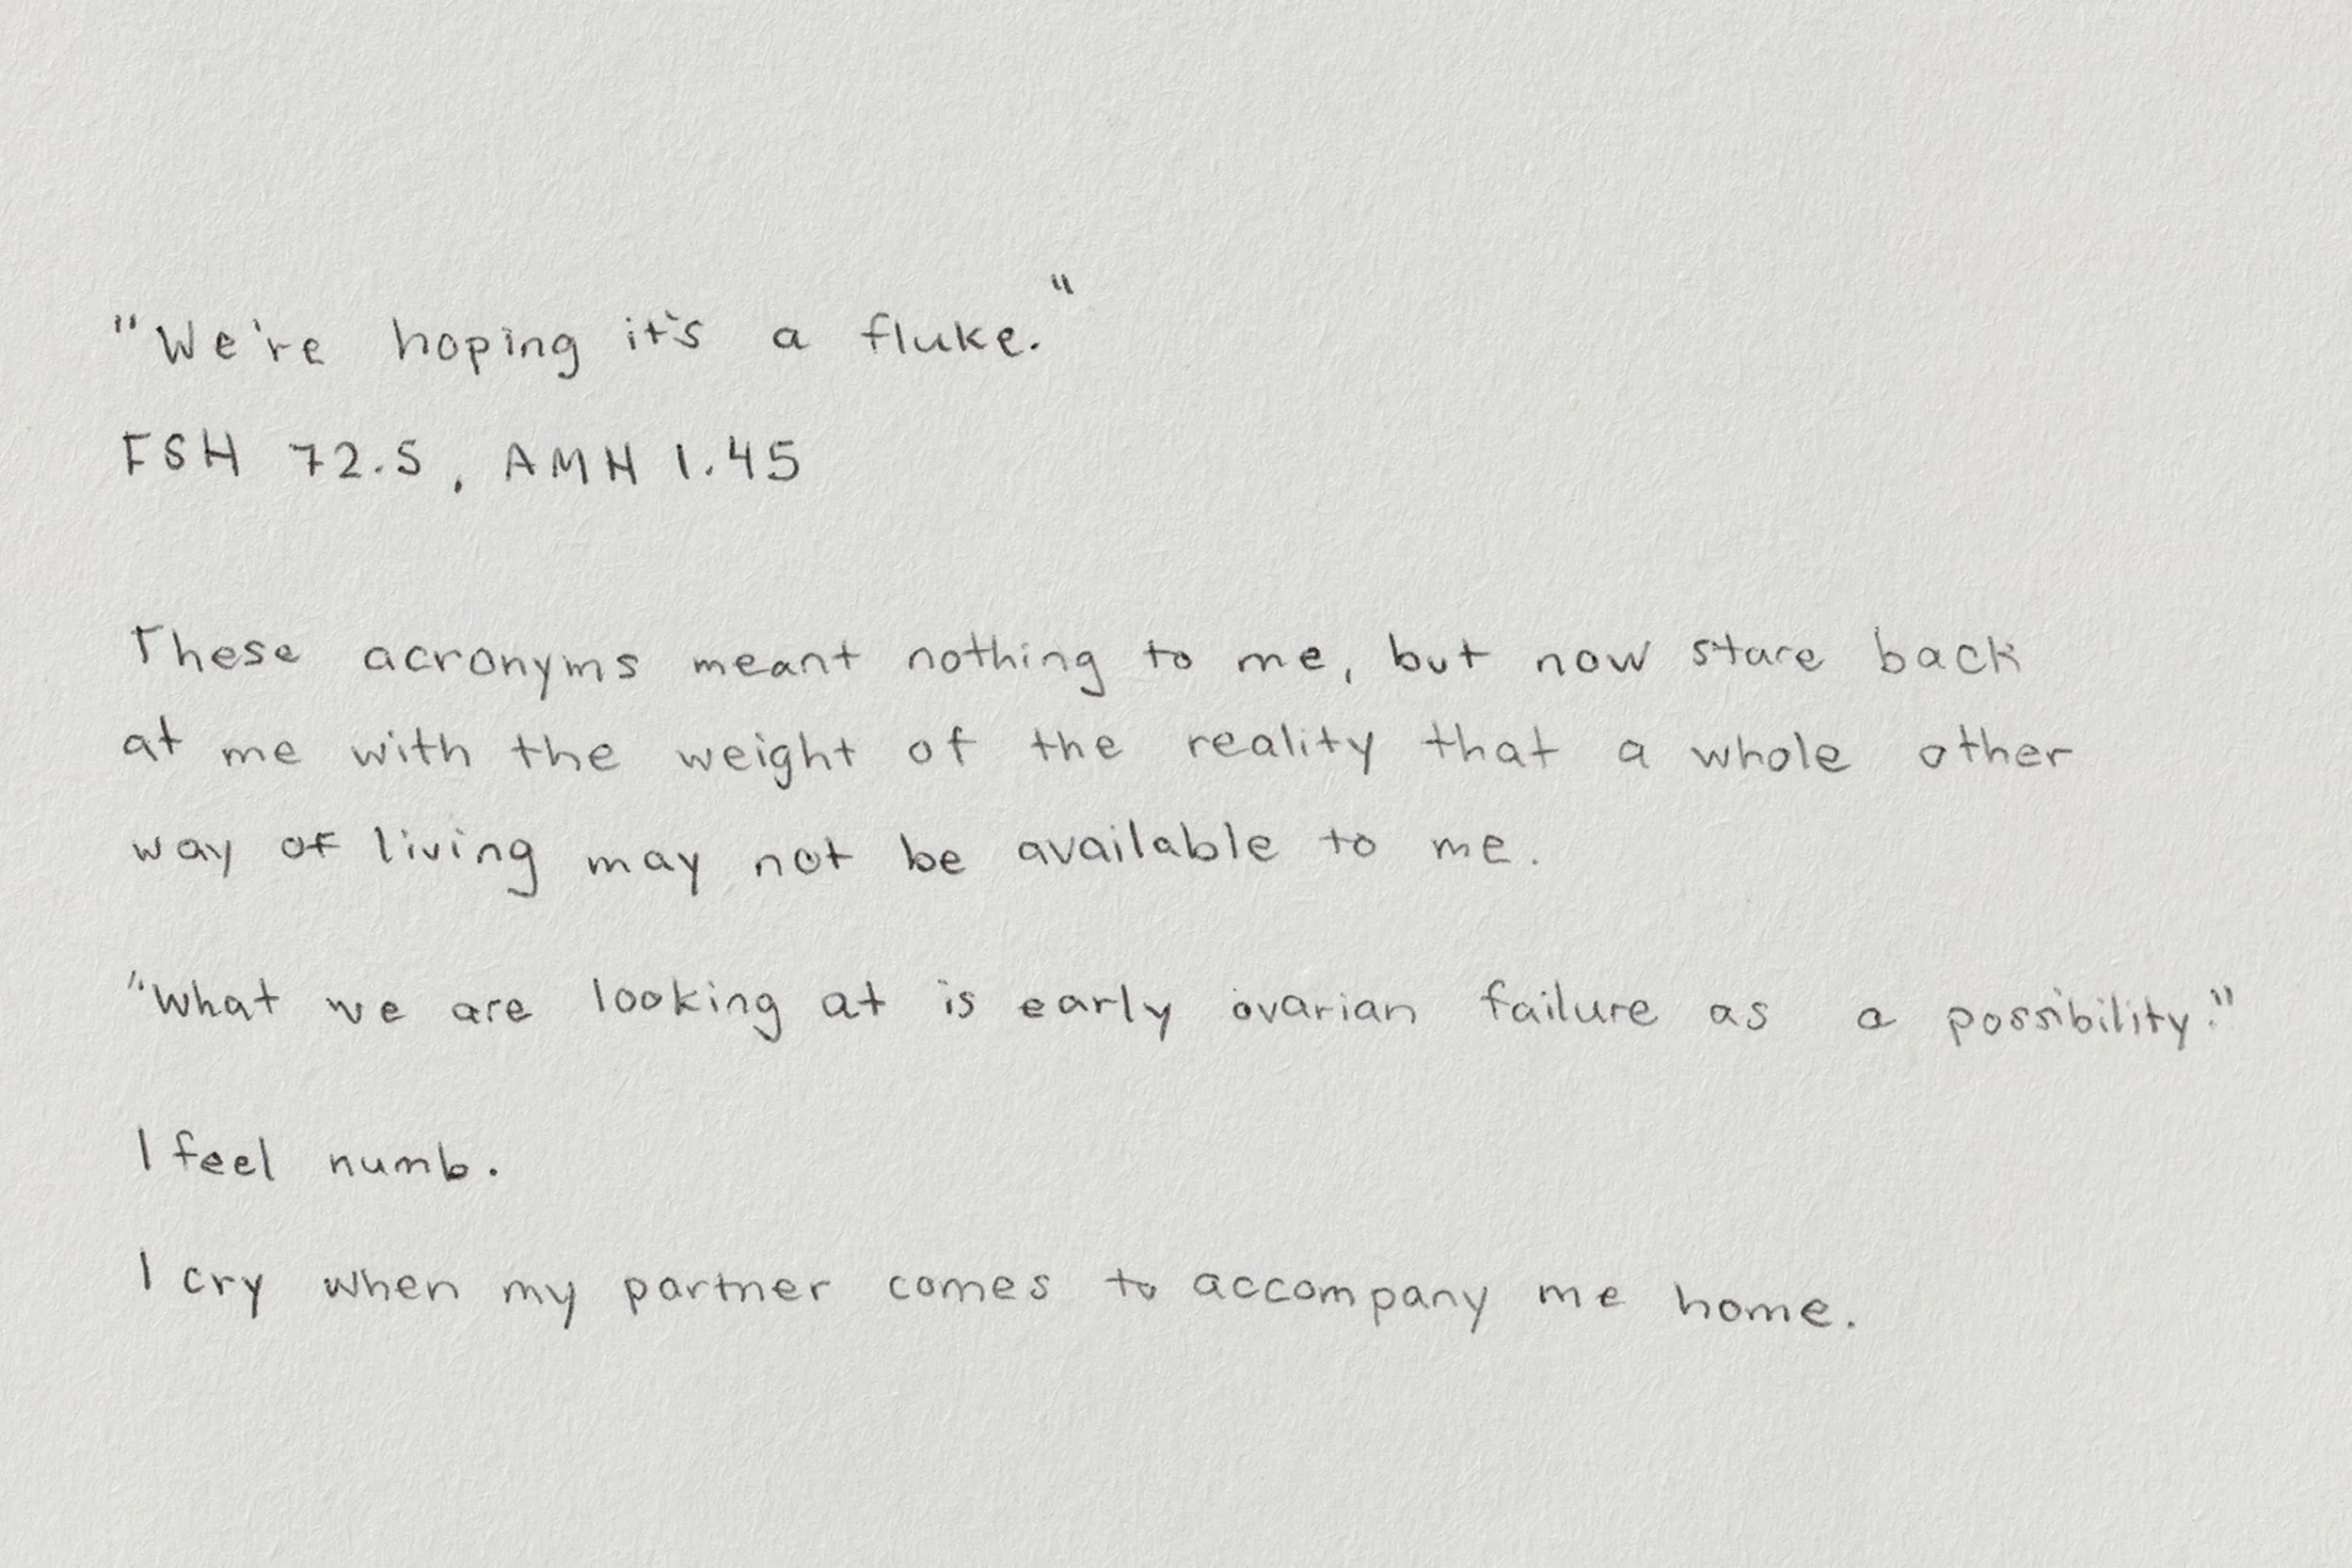 "We're hoping it's a fluke."
FSH 72.5, AMH 1.45
These acronyms meant nothing to me, but now stare back
at me with the weight of the reality that a whole other
way of living may not be available to me.
"What we are looking at is early ovarian failure as a possibility."
I feel numb.
I cry when my partner comes to accompany me home.